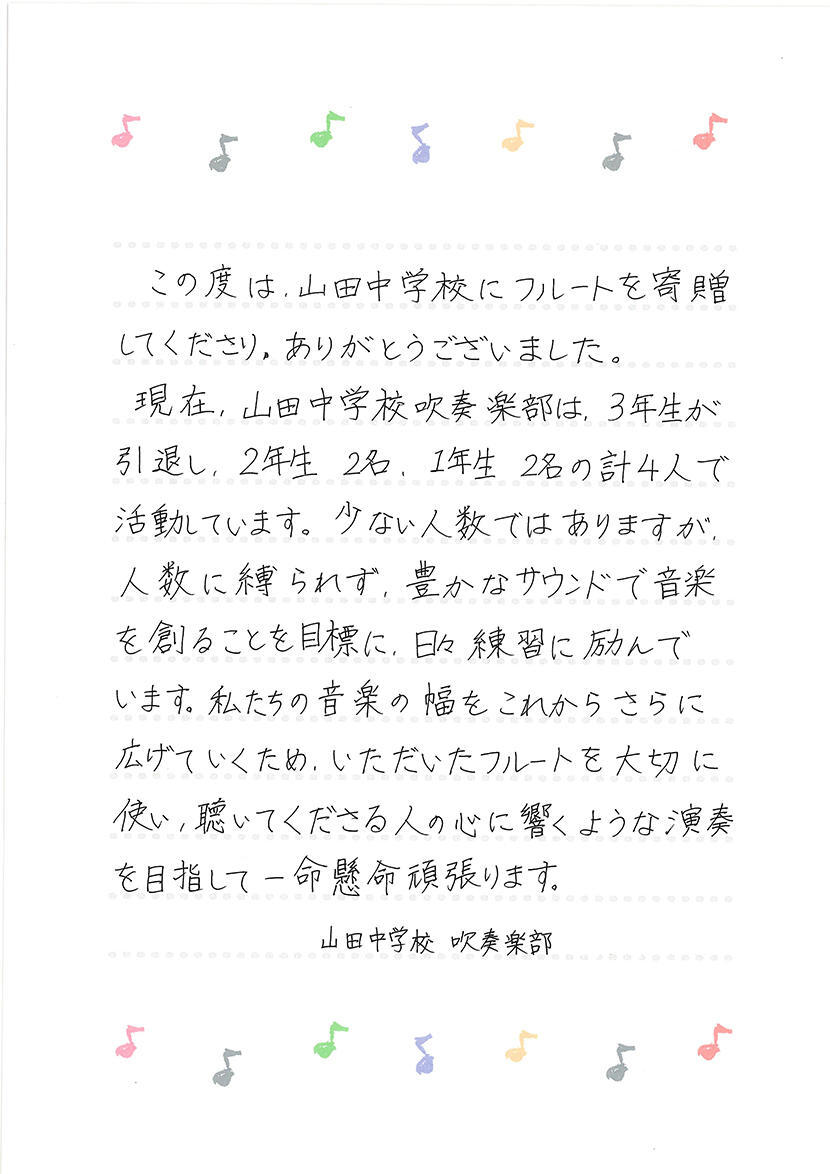 この度は、山田中学校にフルートを寄贈
してくださり、ありがとうございました。
現在、山田中学校吹奏楽部は、3年生が
引退し、2年生 2名、1年生 2名の計4人で
活動しています。少ない人数ではありますが、
人数に縛られず、豊かなサウンドで音楽
を創ることを目標に、日々練習に励んで
います。私たちの音楽の幅をこれからさらに
広げていくため、いただいたフルートを大切に
使い、聴いてくださる人の心に響くような演奏
を目指して一命懸命頑張ります。
山田中学校 吹奏楽部